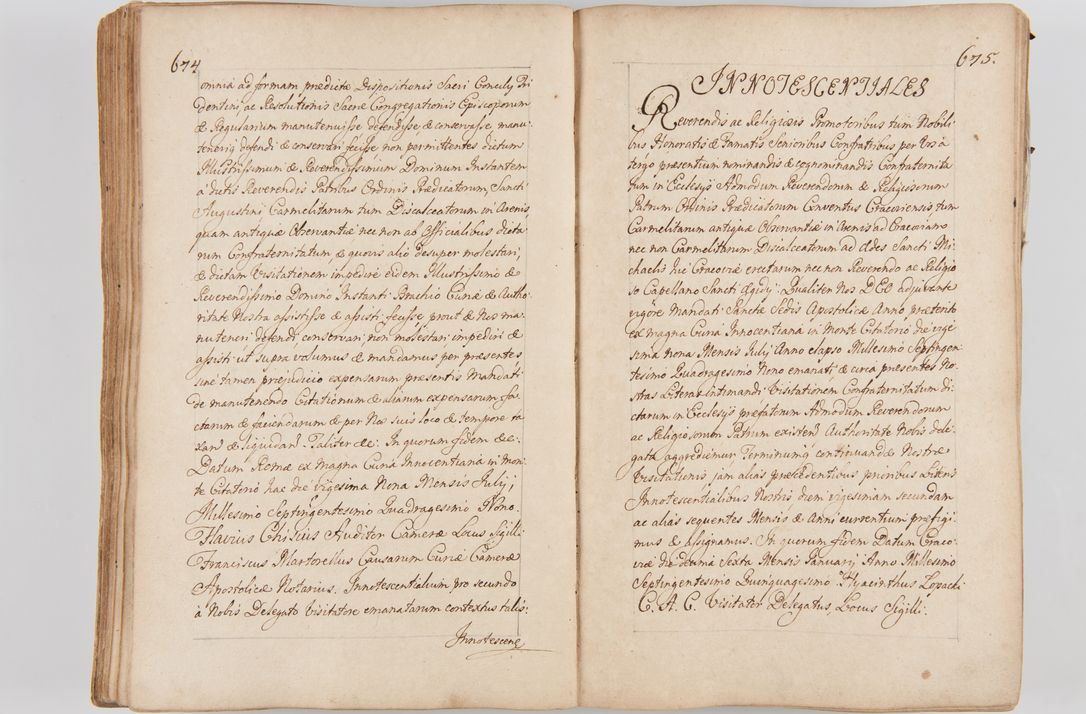 674
omnia ad formam prædictæ Dispositionis Sacri Concily Tri
dentini ac Resolutionis Sacræ Congregationis Episcoporum
& Regularium manutenuisse defendisse & conservasse, manu:
teneriq defendi & conservari fecisse non permittentes dictum
Illustrissimum & Reverendissimum Dominum Instantem
a dictis Reverendis Patribus Ordinis Prædicatorum, Sancti
Augustini Carmelitarum tum Discalceatorum in Arenis
quam antiquæ Observantiæ nec non ab Officialibus dicta
rum Confraternitatum & quovis alio desuper molestari,
& dictam Visitationem impedire eidem Illustrissimo &
Reverendissimo Domino Instanti Brachio Curiæ & Autho:
ritate Nostra astitisse & assisti fecisse prout & Nos ma:
nuteneri defendi conservari, non molestari impediri &
assisti ut supra volumus & mandamus per præsentes
sine tamen præjudicio expensarum præsentis Mandati
de manutenendo Citationum & aliarum expensarum fa:
ctarum & faciendarum & per Nos suis loco & tempore ta
xan & liquidan. Taliter &c. In quorum fidem &c.
Datum Romæ ex Magna Curia Innocentiana in Mon:
te Citatorio hac die Vigesima Nona Mensis Julij
Millesimo Septingentesimo Quadragesimo Nono.
Flavius Chisius Auditor Cameræ Locus Sigilli
Franciscus Martorellus Causarum Curiæ Cameræ
Apostolicæ Notarius. Innotescentialium pro secundo
à Nobis Delegato Visitatore emanatarum contextus talis:
Innotescene
675.
INNOTESCENTIALES
Reverendis ac Religiosis Promotoribus tum Nobili
bus Honoratis & Famatis Senioribus Confratribus per Vos à
tergo præsentium nominandis & cognominandis Confraternita
tum in Ecclesijs Admodum Reverendorum & Religiosorum
Patrum Ordinis Prædicatorum Conventus Cracoviensis tum
Carmelitarum antiquæ Observantiæ in Arenis ad Cracoviam
nec non Carmelitarum Discalceatorum ac Ædes Sancti Mi
chaelis hic Cracoviæ erectarum nec non Reverendo ac Religio
so Capellano Sancti Ægidy. Qualiter Nos DEO adjuvante
vigore Mandati Sanctæ Sedis Apostolicæ Anno præterito
ex magna Curia Innocentiana in Monte Citatorio die vige
sima nona Mensis Julij Anno elapso Millesimo Septingen
tesimo Quadragesimo Nono emanati & circa præsentes No
stras Literas intimandi Visitationem Confraternitatum di
ctarum in Ecclesijs præfatorum Admodum Reverendorum
ac Religiosorum Patrum existen Authoritate Nobis dele
gata aggredimur Terminumq continuandæ Nostræ
Visitationis jam alias præcedentibus prioribus Literis
Innotescentialibus Nostris diem vigesimam secundam
ac alias sequentes Mensis & Anni currentium præfigi
mus & assignamus. In quorum fidem Datum Craco
viæ die decima Sexta Mensis Januarij Anno Millesimo
Septingentesimo Quinquagesimo. Hyacinthus Łopacki
C. A. C. Visitator Delegatus, Locus Sigilli.